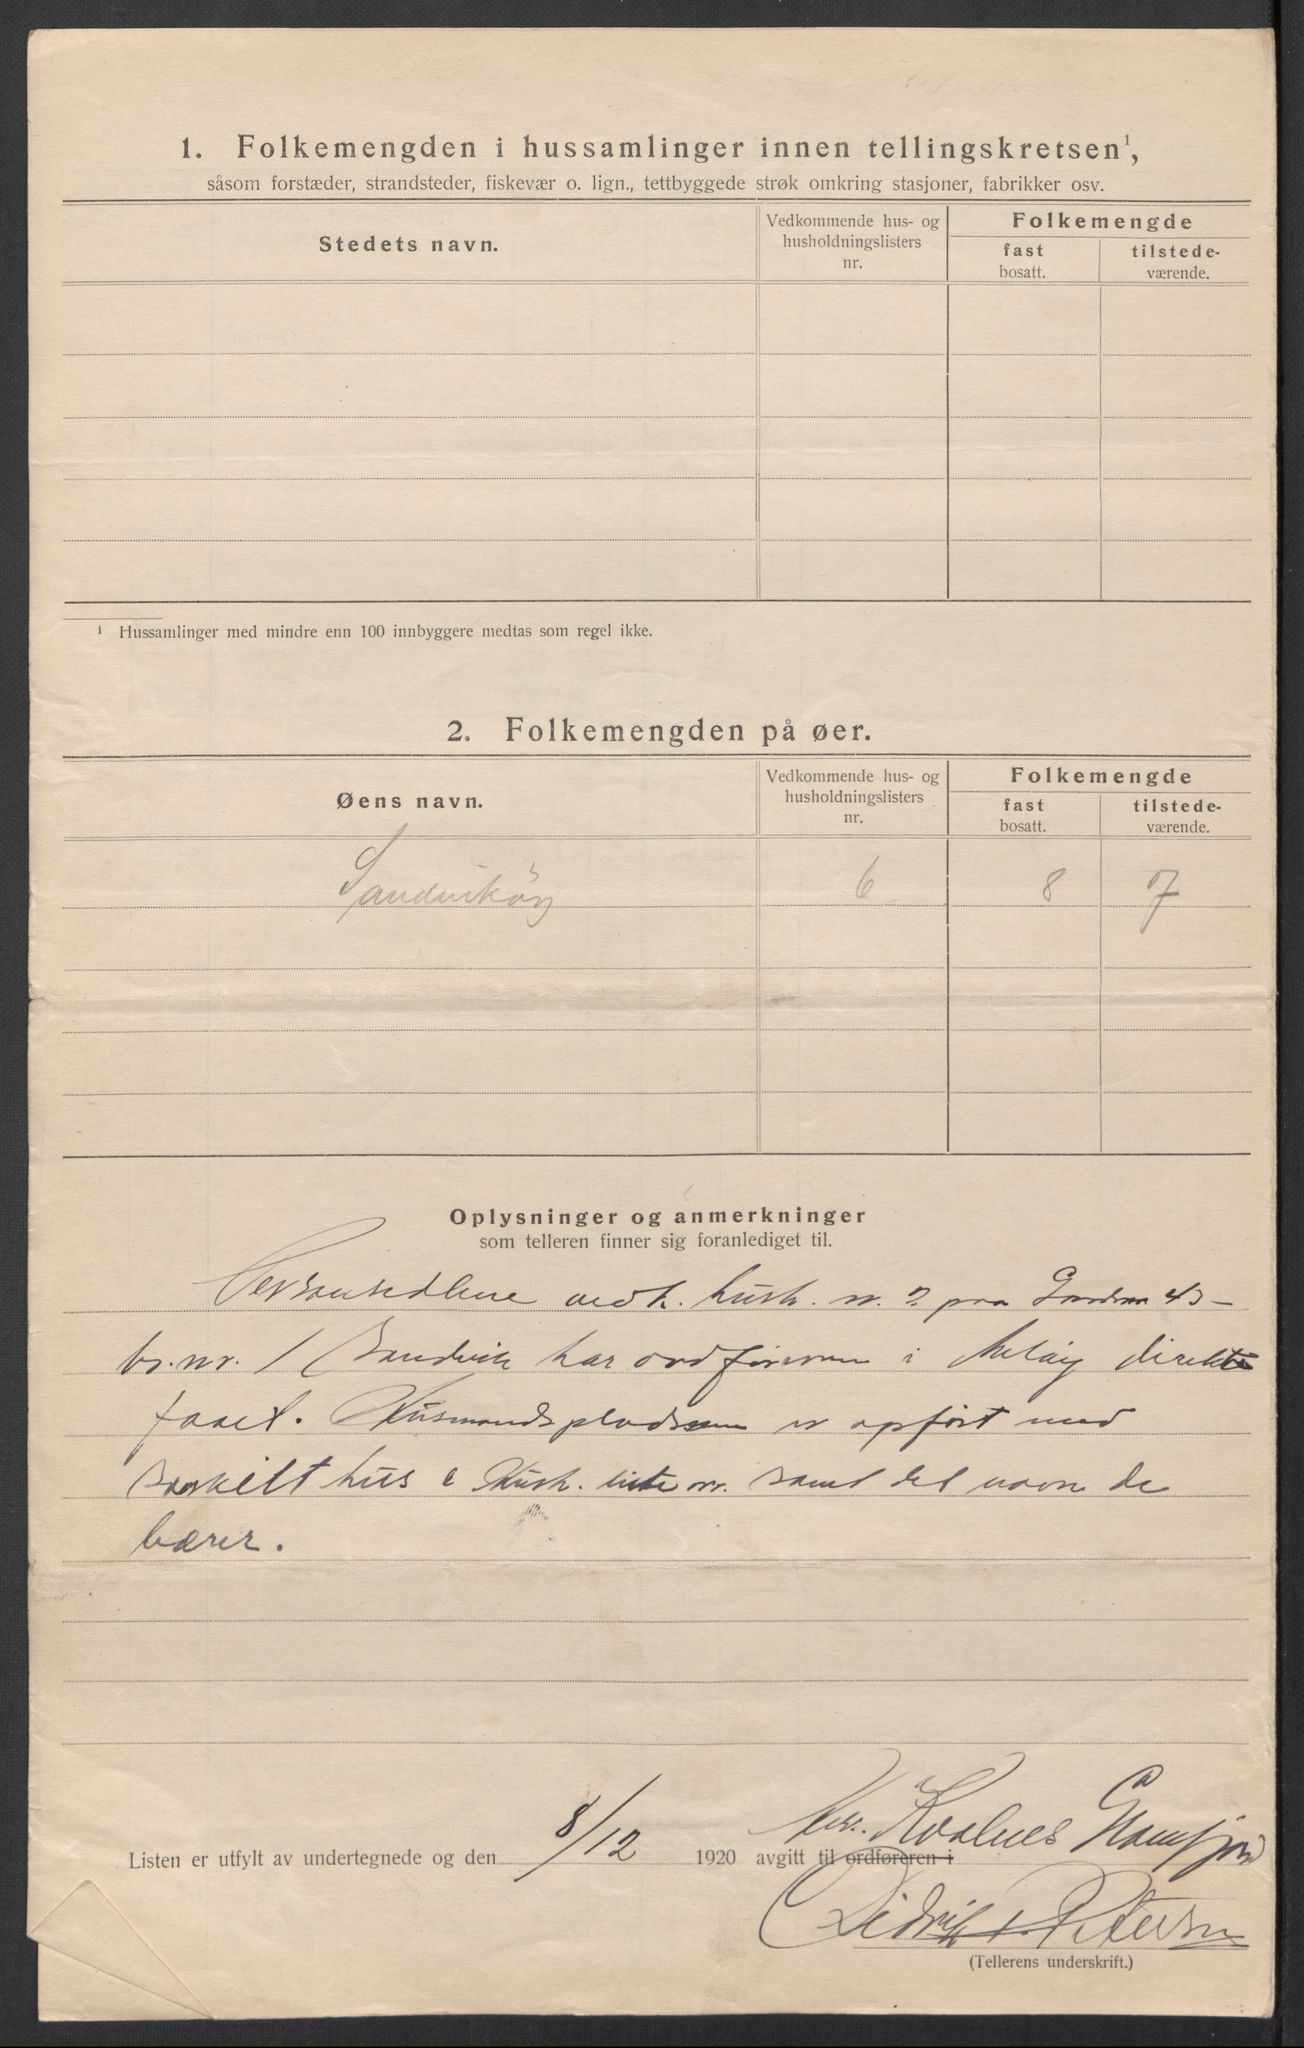 1. Folkemengden i hussamlinger innen tellingskretsen¹,
såsom forstæder, strandsteder, fiskevær o. lign., tettbyggede strøk omkring stasjoner, fabrikker osv.
Stedets navn.
Vedkommende hus- og husholdningslisters nr.
Folkemengde
fast bosatt.
tilstede-værende.
¹ Hussamlinger med mindre enn 100 innbyggere medtas som regel ikke.
2. Folkemengden på øer.
Øens navn.
Vedkommende hus- og husholdningslisters nr.
Folkemengde
fast bosatt.
tilstede-værende.
Sandviköy 6 8 7
Oplysninger og anmerkninger
som telleren finner sig foranlediget til.
Personsedlene vedk. hush. nr. 2 paa 43 -
br. nr. 1 Sandvik har ordföreren i Melöy direkte
faaet. Husmandspladsen er opfört med
særkilt hus & Hush. liste nr. samt det navn de
bærer.
Listen er utfylt av undertegnede og den 8/12 1920 avgitt til ordføreren i
Kvalnes
Didrik Petersen
(Tellerens underskrift.)